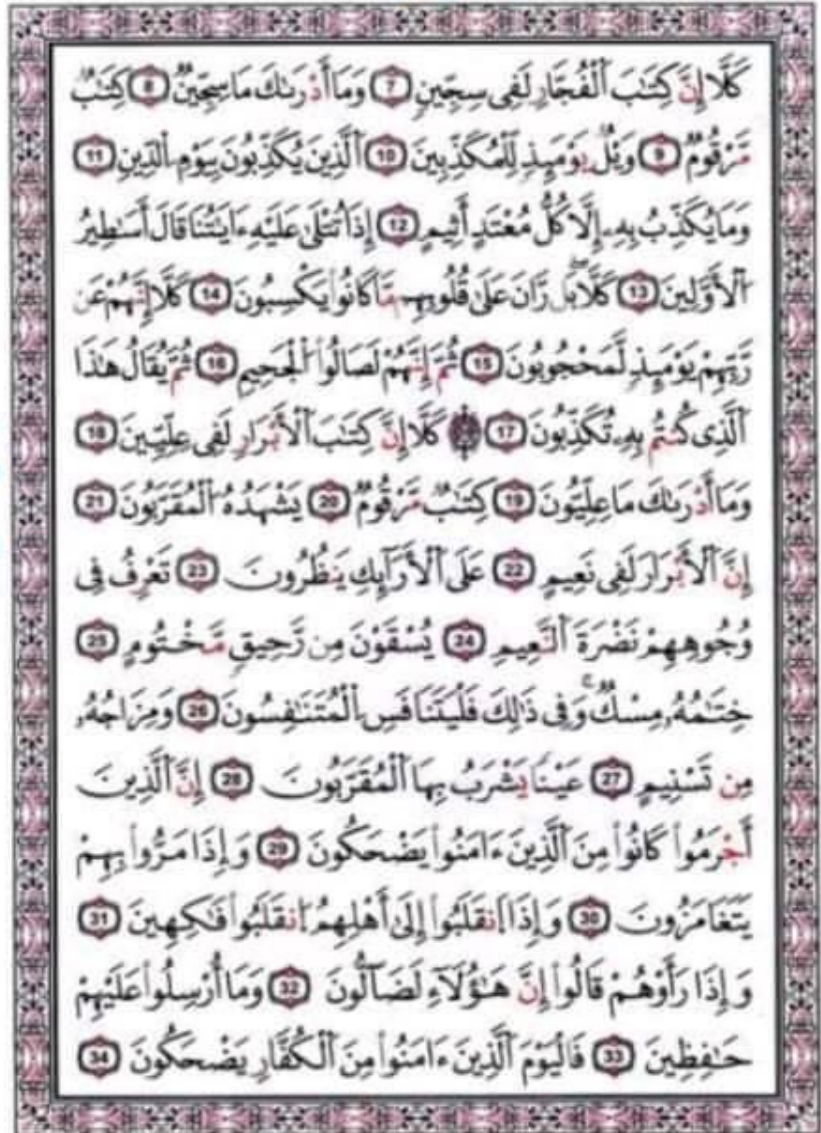 كَلَّآ إِنَّ كِتَٰبَ ٱلْفُجَّارِ لَفِى سِجِّينٍ 7 وَمَآ أَدْرَىٰكَ مَا سِجِّينٌ 8 كِتَٰبٌ
مَّرْقُومٌ 9 وَيْلٌ يَوْمَئِذٍ لِّلْمُكَذِّبِينَ 10 ٱلَّذِينَ يُكَذِّبُونَ بِيَوْمِ ٱلدِّينِ 11
وَمَا يُكَذِّبُ بِهِۦٓ إِلَّا كُلُّ مُعْتَدٍ أَثِيمٍ 12 إِذَا تُتْلَىٰ عَلَيْهِ ءَايَٰتُنَا قَالَ أَسَٰطِيرُ
ٱلْأَوَّلِينَ 13 كَلَّا بَلْ رَانَ عَلَىٰ قُلُوبِهِم مَّا كَانُوا۟ يَكْسِبُونَ 14 كَلَّآ إِنَّهُمْ عَن
رَّبِّهِمْ يَوْمَئِذٍ لَّمَحْجُوبُونَ 15 ثُمَّ إِنَّهُمْ لَصَالُوا۟ ٱلْجَحِيمِ 16 ثُمَّ يُقَالُ هَٰذَا
ٱلَّذِى كُنتُم بِهِۦ تُكَذِّبُونَ 17 كَلَّآ إِنَّ كِتَٰبَ ٱلْأَبْرَارِ لَفِى عِلِّيِّينَ 18
وَمَآ أَدْرَىٰكَ مَا عِلِّيُّونَ 19 كِتَٰبٌ مَّرْقُومٌ 20 يَشْهَدُهُ ٱلْمُقَرَّبُونَ 21
إِنَّ ٱلْأَبْرَارَ لَفِى نَعِيمٍ 22 عَلَى ٱلْأَرَآئِكِ يَنظُرُونَ 23 تَعْرِفُ فِى
وُجُوهِهِمْ نَضْرَةَ ٱلنَّعِيمِ 24 يُسْقَوْنَ مِن رَّحِيقٍ مَّخْتُومٍ 25
خِتَٰمُهُۥ مِسْكٌ ۚ وَفِى ذَٰلِكَ فَلْيَتَنَافَسِ ٱلْمُتَنَٰفِسُونَ 26 وَمِزَاجُهُۥ
مِن تَسْنِيمٍ 27 عَيْنًا يَشْرَبُ بِهَا ٱلْمُقَرَّبُونَ 28 إِنَّ ٱلَّذِينَ
أَجْرَمُوا۟ كَانُوا۟ مِنَ ٱلَّذِينَ ءَامَنُوا۟ يَضْحَكُونَ 29 وَإِذَا مَرُّوا۟ بِهِمْ
يَتَغَامَزُونَ 30 وَإِذَا ٱنقَلَبُوٓا۟ إِلَىٰٓ أَهْلِهِمُ ٱنقَلَبُوا۟ فَٰكِهِينَ 31
وَإِذَا رَأَوْهُمْ قَالُوٓا۟ إِنَّ هَٰٓؤُلَآءِ لَضَآلُّونَ 32 وَمَآ أُرْسِلُوا۟ عَلَيْهِمْ
حَٰفِظِينَ 33 فَٱلْيَوْمَ ٱلَّذِينَ ءَامَنُوا۟ مِنَ ٱلْكُفَّارِ يَضْحَكُونَ 34